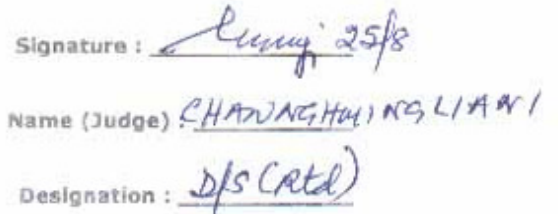 Signature : 25/8
Name (Judge) : CHAWNGHMINGLIANI
Designation : D/S (Rtd)